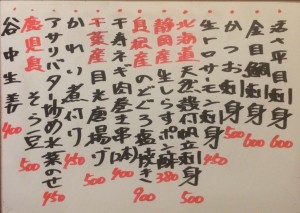 平目刺身 600
金目鯛刺身 600
かつお刺身 500
生トロサーモン刺身 450
北海道 天然殻付帆立刺身 500
静岡産 生しらすポン酢 380
島根産 のどぐろ塩焼き 900
千寿ネギ肉巻き串(2本) 400
千葉産 目光唐揚げ 500
かれい煮付け 450
アサリバタ炒め水菜のせ 450
鹿児島 そら豆 500
谷中生姜 400